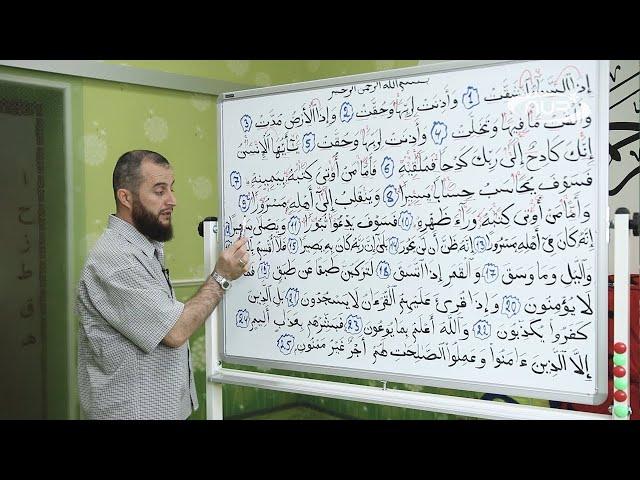 بسم الله الرحمن الرحيم
إِذَا ٱلسَّمَآءُ ٱنشَقَّتْ 1 وَأَذِنَتْ لِرَبِّهَا وَحُقَّتْ 2 وَإِذَا ٱلْأَرْضُ مُدَّتْ 3
وَأَلْقَتْ مَا فِيهَا وَتَخَلَّتْ 4 وَأَذِنَتْ لِرَبِّهَا وَحُقَّتْ 5 يَٰٓأَيُّهَا ٱلْإِنسَٰنُ
إِنَّكَ كَادِحٌ إِلَىٰ رَبِّكَ كَدْحًا فَمُلَٰقِيهِ 6 فَأَمَّا مَنْ أُوتِىَ كِتَٰبَهُۥ بِيَمِينِهِۦ 7
فَسَوْفَ يُحَاسَبُ حِسَابًا يَسِيرًا 8 وَيَنقَلِبُ إِلَىٰٓ أَهْلِهِۦ مَسْرُورًا 9
وَأَمَّا مَنْ أُوتِىَ كِتَٰبَهُۥ وَرَآءَ ظَهْرِهِۦ 10 فَسَوْفَ يَدْعُوا۟ ثُبُورًا 11 وَيَصْلَىٰ سَعِيرًا 12
إِنَّهُۥ كَانَ فِىٓ أَهْلِهِۦ مَسْرُورًا 13 إِنَّهُۥ ظَنَّ أَن لَّن يَحُورَ 14 بَلَىٰٓ إِنَّ رَبَّهُۥ كَانَ بِهِۦ بَصِيرًا 15 فَلَآ أُقْسِمُ
وَٱلَّيْلِ وَمَا وَسَقَ 17 وَٱلْقَمَرِ إِذَا ٱتَّسَقَ 18 لَتَرْكَبُنَّ طَبَقًا عَن طَبَقٍ 19 فَمَا
لَا يُؤْمِنُونَ 20 وَإِذَا قُرِئَ عَلَيْهِمُ ٱلْقُرْءَانُ لَا يَسْجُدُونَ 21 بَلِ ٱلَّذِينَ
كَفَرُوا۟ يُكَذِّبُونَ 22 وَٱللَّهُ أَعْلَمُ بِمَا يُوعُونَ 23 فَبَشِّرْهُم بِعَذَابٍ أَلِيمٍ 24
إِلَّا ٱلَّذِينَ ءَامَنُوا۟ وَعَمِلُوا۟ ٱلصَّٰلِحَٰتِ لَهُمْ أَجْرٌ غَيْرُ مَمْنُونٍ 25